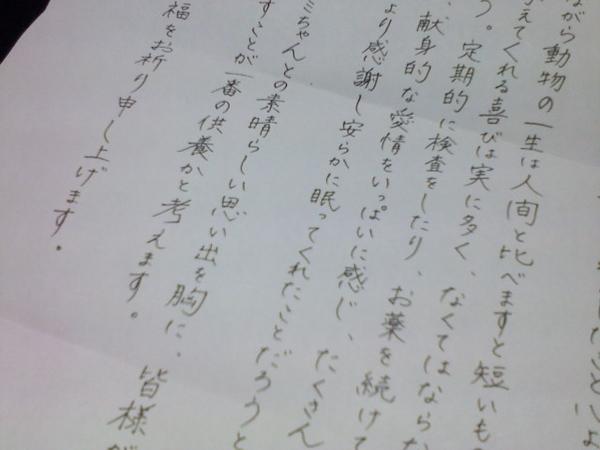 ながら動物の一生は人間と比べますと短いもの
えてくれる喜びは実に多く、なくてはならな
う。定期的に検査をしたり、お薬を続けて
、献身的な愛情をいっぱいに感じ、たくさん
より感謝し安らかに眠ってくれたことだろうと
ミちゃんとの素晴らしい思い出を胸に、皆様が
すことが一番の供養かと考えます。
福をお祈り申し上げます。